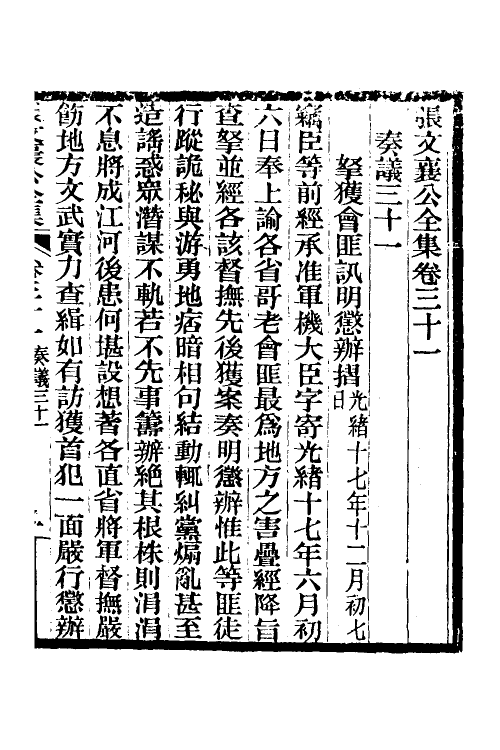 張文襄公全集卷三十一
奏議三十一
拏獲會匪訊明懲辦摺光緒十七年十二月初七日
竊臣等前經承准軍機大臣字寄光緒十七年六月初
六日奉上諭各省哥老會匪最爲地方之害疊經降旨
查拏並經各該督撫先後獲案奏明懲辦惟此等匪徒
行蹤詭秘與游勇地痞暗相句結動輒糾黨煽亂甚至
造謠惑眾潛謀不軌若不先事籌辦絕其根株則涓涓
不息將成江河後患何堪設想著各直省將軍督撫嚴
飭地方文武實力查緝如有訪獲首犯一面嚴行懲辦
奏議三十一